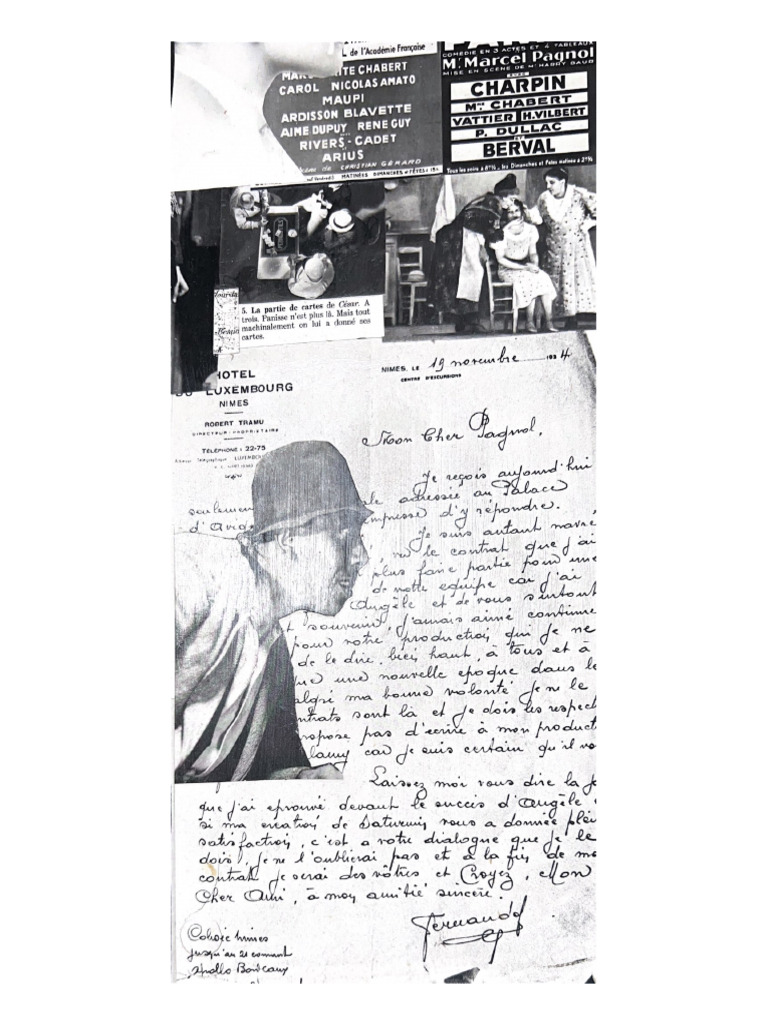 L de l'Académie Française
CHABERT
CAROL NICOLAS AMATO
MAUPI
ARDISSON BLAVETTE
AIME DUPUY RENE GUY
RIVERS-CADET
ARIUS
DE CHRISTIAN GÉRARD
MATINÉES DIMANCHES & FÊTES
COMÉDIE EN 3 ACTES ET 4 TABLEAUX
Mr. Marcel Pagnol
MISE EN SCÈNE DE Mr HARRY BAUR
AVEC
CHARPIN
Mme CHABERT
VATTIER H.VILBERT
P. DULLAC
BERVAL
Tous les soirs à les Dimanches et Fêtes matinée à
5. La partie de cartes de César. A
trois. Panisse n'est plus là. Mais tout
machinalement on lui a donné ses
cartes.
HOTEL
DU LUXEMBOURG
NIMES
ROBERT TRAMU
DIRECTEUR-PROPRIÉTAIRE
TÉLÉPHONE : 22-75
NIMES, LE 19 novembre 1934
CENTRE D'EXCURSIONS
Mon Cher Pagnol,
Je reçois aujourd'hui
seulement ale adressée au Palace
d' empresse d'y répondre.
Je suis autant navré
, vu le contrat que j'ai
plus faire partie pour une
de votre équipe car j'ai
Angèle et de vous surtout
souvenir, j'amais aimé continuer
pour votre production qui je ne
de le dire, bien haut, à tous et à
une nouvelle epoque dans le
algré ma bonne volonté je ne le
ntrats sont là et je dois les respect
ropose pas d'écrire à mon product
car je suis certain qu'il
Laissez moi vous dire la
que j'ai eprouvé devant le succès d'Angèle
si ma création de Saturnin vous a donnée plei
satisfaction, c'est a votre dialogue que je le
dois, je ne l'oublierai pas et à la fin de mo
contrat je serai des vôtres et Croyez, Mon
Cher Ami, à mon amitié sincère.
Fernandel
nimes
jusqu'au 21 courant
Apollo Bordeaux